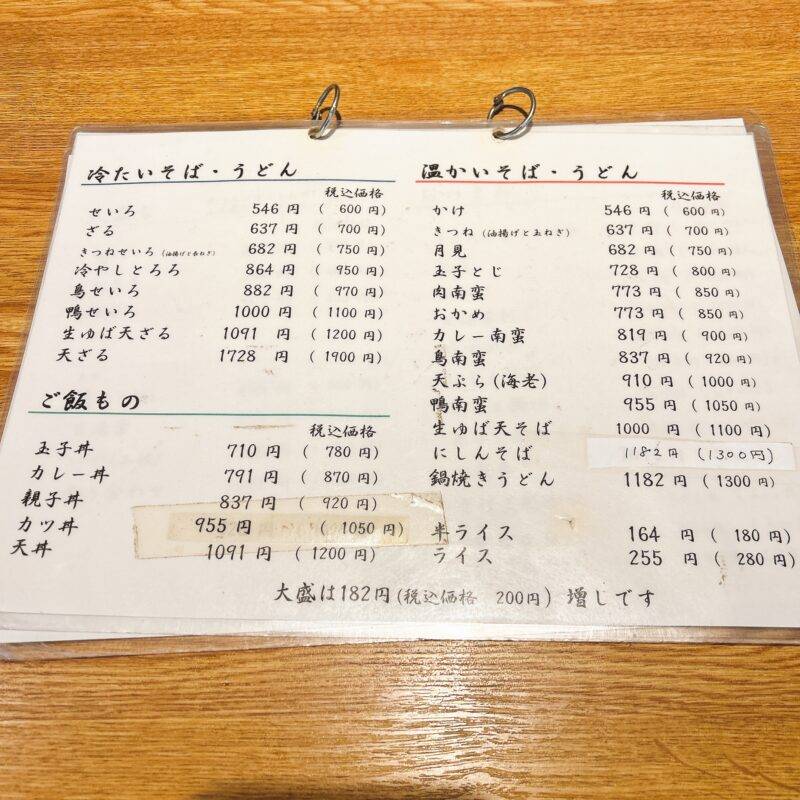 冷たいそば・うどん
税込価格
せいろ 546 円 ( 600 円)
ざる 637 円 ( 700 円)
きつねせいろ (油揚げと長ねぎ) 682 円 ( 750 円)
冷やしとろろ 864 円 ( 950 円)
鳥せいろ 882 円 ( 970 円)
鴨せいろ 1000 円 ( 1100 円)
生ゆば天ざる 1091 円 ( 1200 円)
天ざる 1728 円 ( 1900 円)
ご飯もの
税込価格
玉子丼 710 円 ( 780 円)
カレー丼 791 円 ( 870 円)
親子丼 837 円 ( 920 円)
カツ丼 955 円 ( 1050 円)
天丼 1091 円 ( 1200 円)
温かいそば・うどん
税込価格
かけ 546 円 ( 600 円)
きつね (油揚げと玉ねぎ) 637 円 ( 700 円)
月見 682 円 ( 750 円)
玉子とじ 728 円 ( 800 円)
肉南蛮 773 円 ( 850 円)
おかめ 773 円 ( 850 円)
カレー南蛮 819 円 ( 900 円)
鳥南蛮 837 円 ( 920 円)
天ぷら(海老) 910 円 ( 1000 円)
鴨南蛮 955 円 ( 1050 円)
生ゆば天そば 1000 円 ( 1100 円)
にしんそば 1182円 (1300円)
鍋焼きうどん 1182 円 ( 1300 円)
半ライス 164 円 ( 180 円)
ライス 255 円 ( 280 円)
大盛は182円(税込価格 200円) 増しです